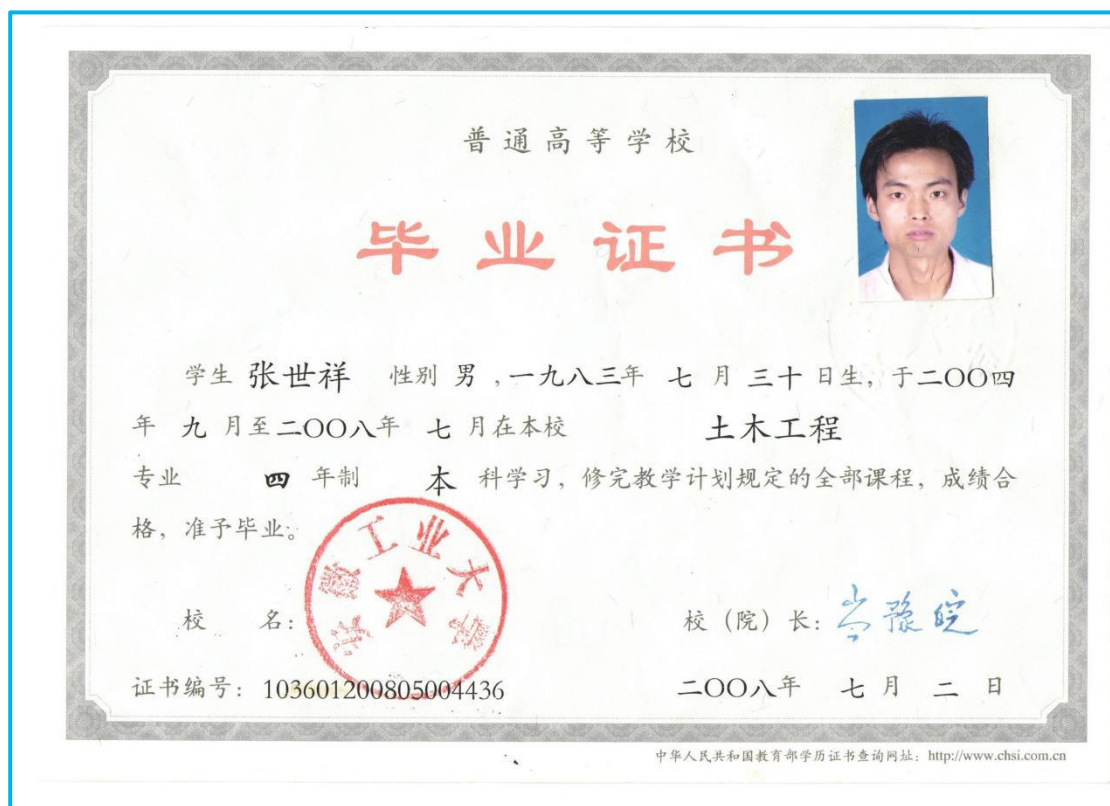 普通高等学校
毕业证书
学生 张世祥 性别 男 ,一九八三年 七 月 三十 日生, 于二〇〇四
年 九 月至二〇〇八年 七 月在本校 土木工程
专业 四 年制 本 科学习, 修完教学计划规定的全部课程, 成绩合
格, 准予毕业。
安徽工业大学
校 名: 校 (院) 长: 岑豫皖
证书编号: 103601200805004436 二〇〇八年 七 月 二 日
中华人民共和国教育部学历证书查询网址: http://www.chsi.com.cn